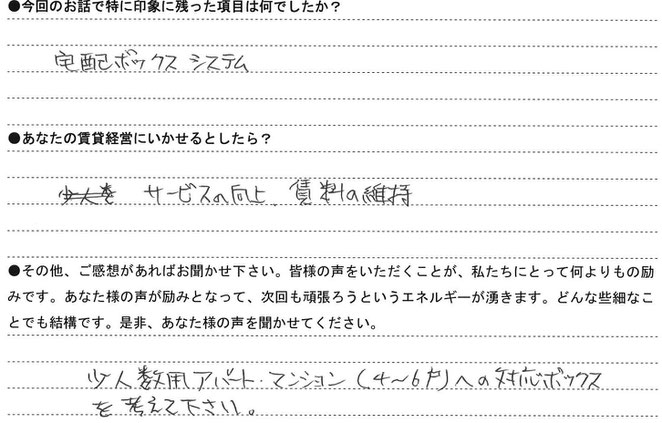 ●今回のお話で特に印象に残った項目は何でしたか？
宅配ボックスシステム
●あなたの賃貸経営にいかせるとしたら？
サービスの向上、賃料の維持
●その他、ご感想があればお聞かせ下さい。皆様の声をいただくことが、私たちにとって何よりもの励
みです。あなた様の声が励みとなって、次回も頑張ろうというエネルギーが湧きます。どんな些細なこ
とでも結構です。是非、あなた様の声を聞かせてください。
少人数用アパート・マンション（4～6戸）への対応ボックス
を考えて下さい。